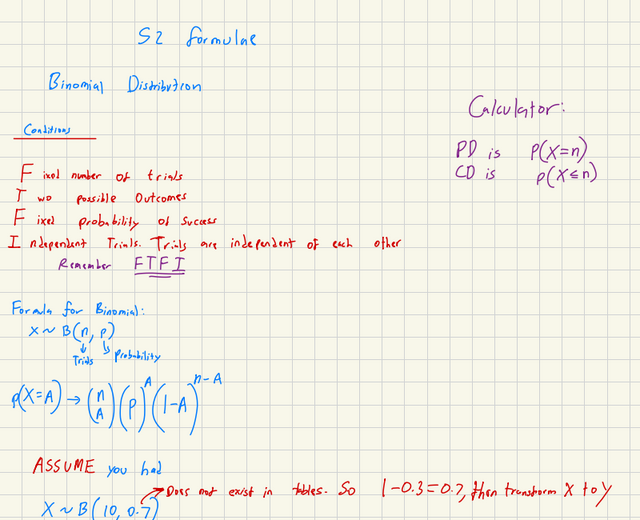 S2 formulae
Binomial Distribution
Conditions
Fixed number of trials
Two possible Outcomes
Fixed probability of Success
Independent Trials. Trials are independent of each other
Remember FTFI
Calculator:
PD is P(X=n)
CD is P(X≤n)
Formula for Binomial:
X ~ B(n, p)
↓ ↳
Trials Probability
P(X=A) → (n A) (p)^A (1-A)^n-A
ASSUME you had
Does not exist in tables. So 1-0.3=0.7, then transform X to Y
X ~ B(10, 0.7)